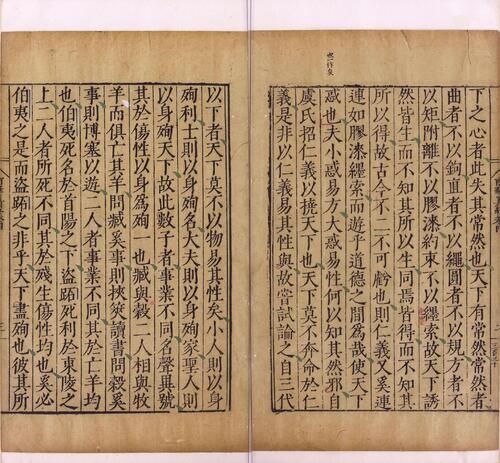 下之心者此失其常然也天下有常然常然者
曲者不以鉤直者不以繩圓者不以規方者不
以矩附離不以膠漆約束不以纆索故天下誘
然皆生而不知其所以生同焉皆得而不知其
所以得故古今不二不可虧也則仁義又奚連
連如膠漆纆索而遊乎道德之間爲哉使天下
惑也夫小惑易方大惑易性何以知其然邪自
虞氏招仁義以撓天下也天下莫不奔命於仁
義是非以仁義易其性與故嘗試論之自三代
以下者天下莫不以物易其性矣小人則以身
殉利士則以身殉名大夫則以身殉家聖人則
以身殉天下故此數子者事業不同名聲異號
其於傷性以身爲殉一也臧與穀二人相與牧
羊而俱亡其羊問臧奚事則挾筴讀書問穀奚
事則博塞以遊二人者事業不同其於亡羊均
也伯夷死名於首陽之下盜跖死利於東陵之
上二人者所死不同其於殘生傷性均也奚必
伯夷之是而盜跖之非乎天下盡殉也彼其所